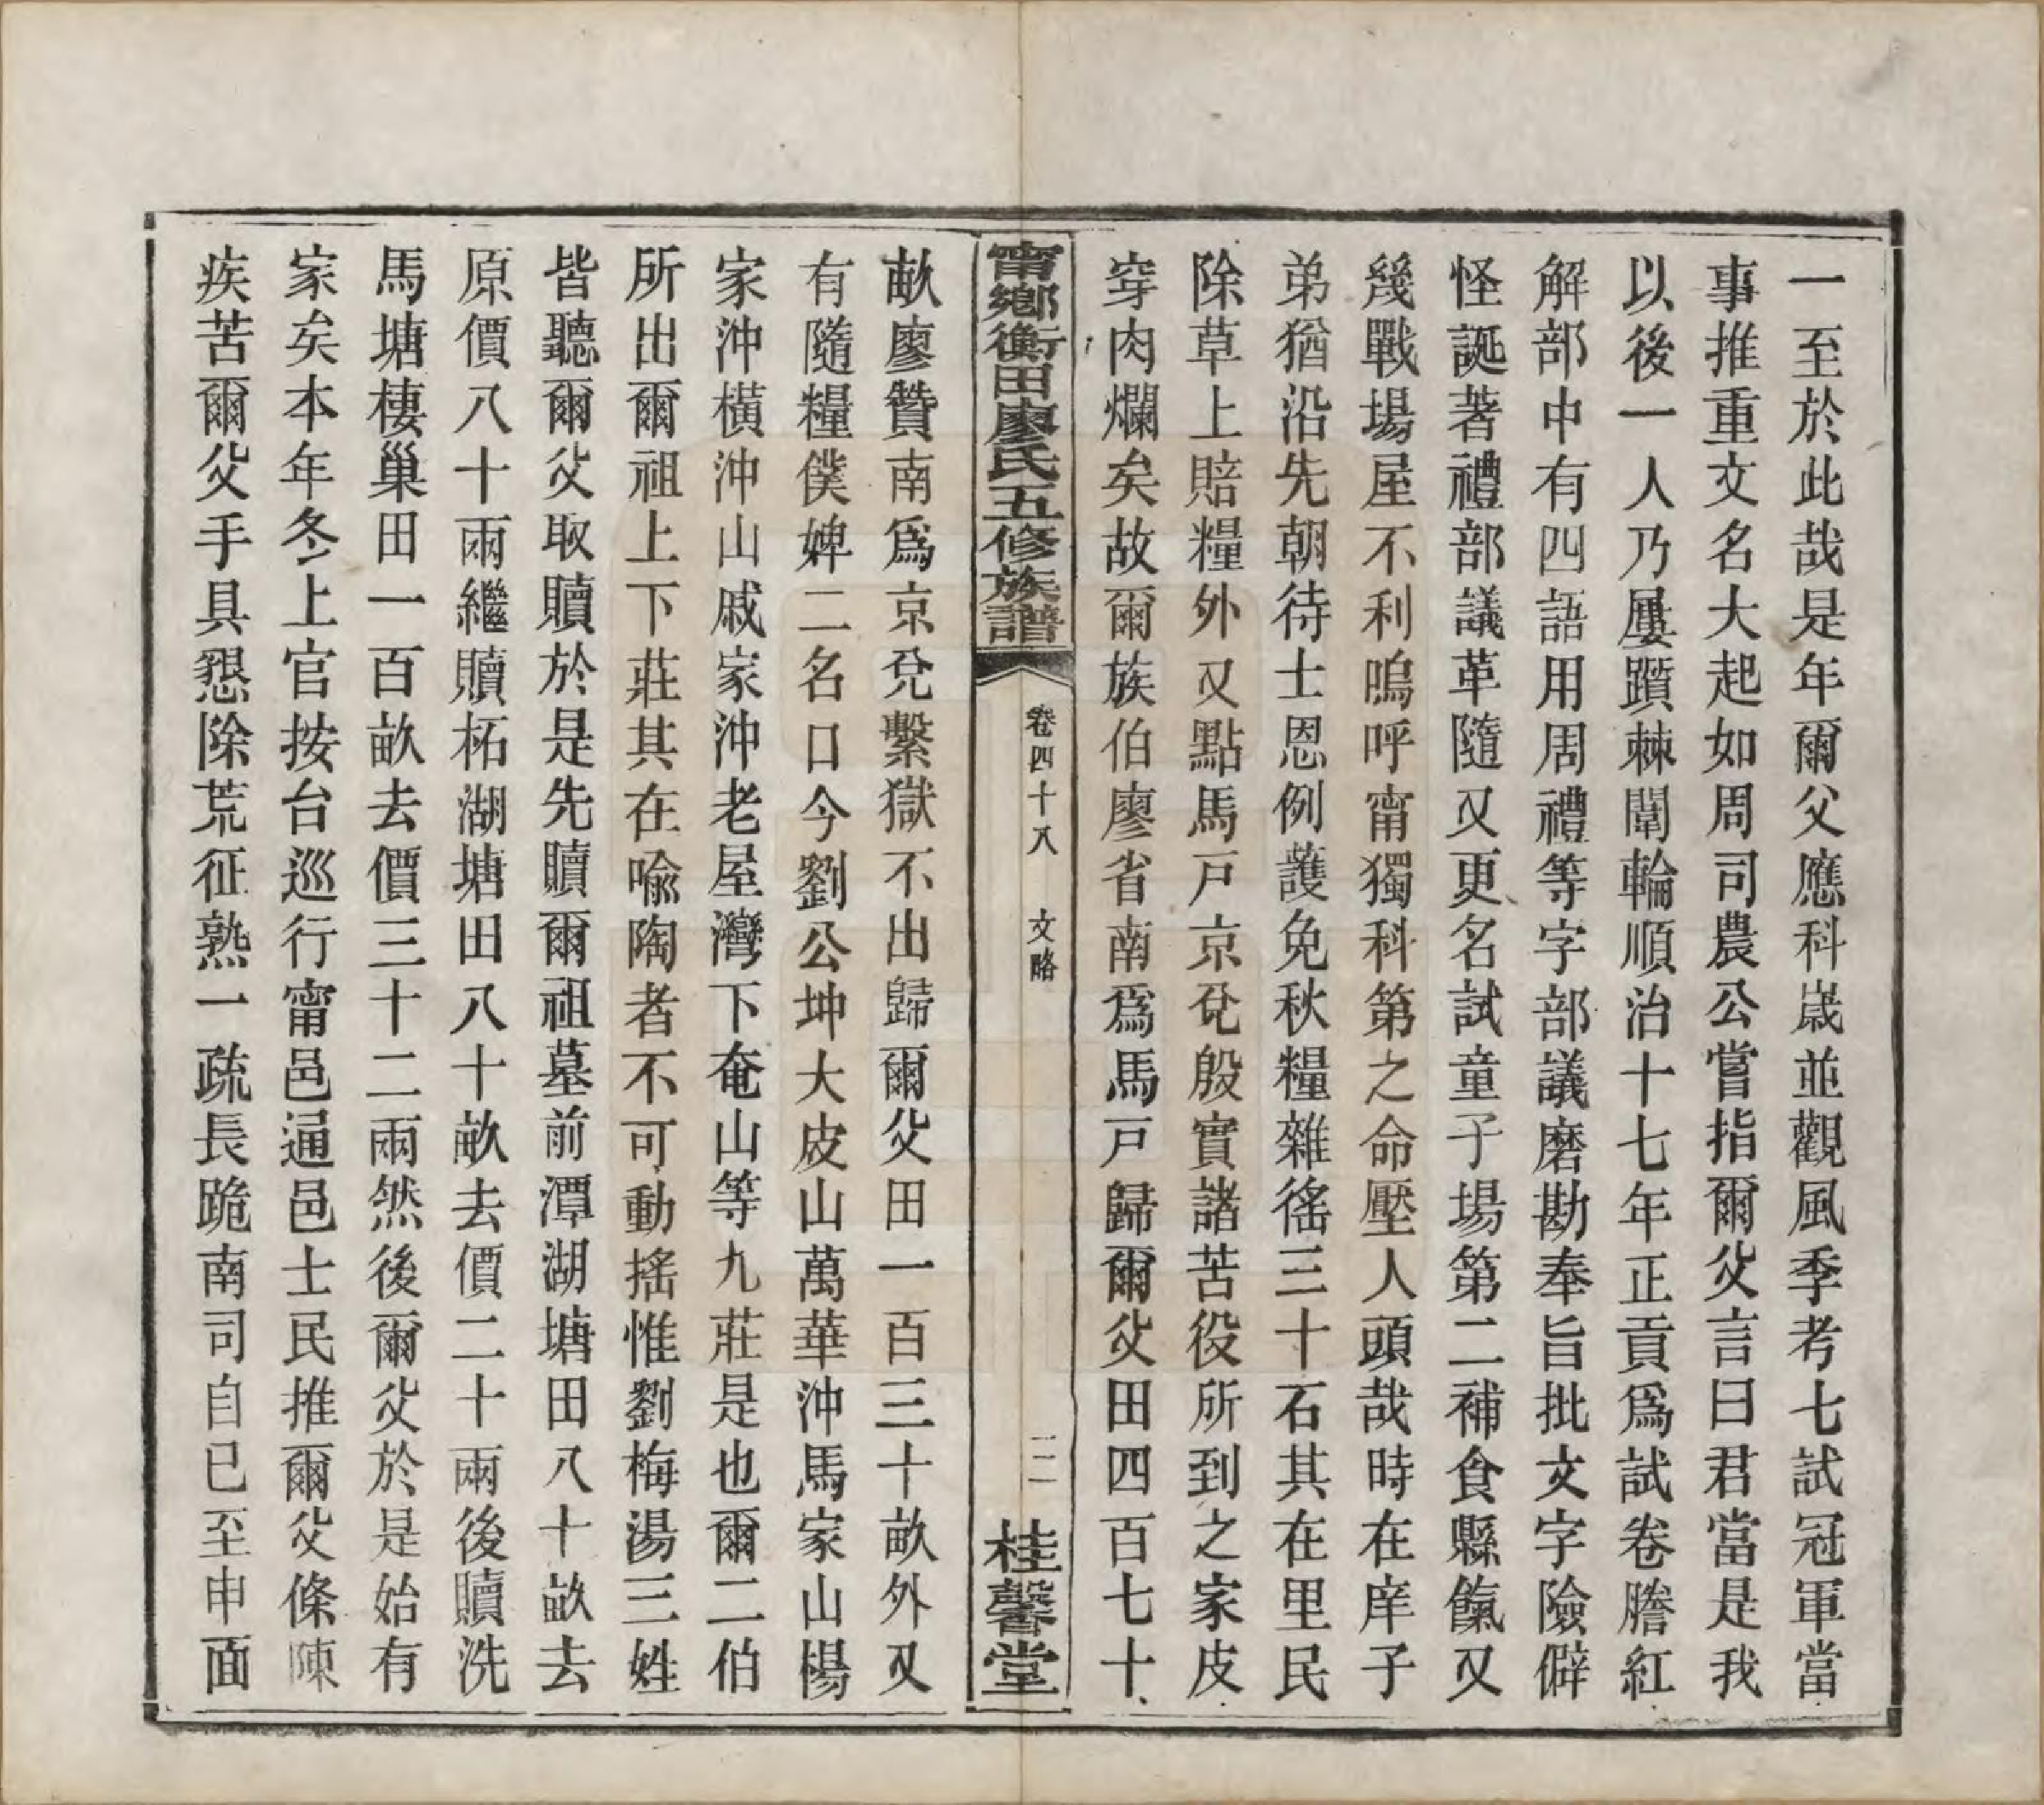 一至於此哉是年爾父應科歲並觀風季考七試冠軍當
事推重文名大起如周司農公嘗指爾父言曰君當是我
以後一人乃屢躓棘闈輪順治十七年正貢爲試卷謄紅
解部中有四語用周禮等字部議磨勘奉旨批文字險僻
怪誕著禮部議革隨又更名試童子場第二補食縣餼又
幾戰場屋不利嗚呼甯獨科第之命壓人頭哉時在庠子
弟猶沿先朝待士恩例護免秋糧雜徭三十石其在里民
除草上賠糧外又點馬戸京兌殷實諸苦役所到之家皮
穿肉爛矣故爾族伯廖省南爲馬戸歸爾父田四百七十
甯鄉衡田廖氏五修族譜
卷四十八 文略
二
桂馨堂
畝廖贊南爲京兌繫獄不出歸爾父田一百三十畝外又
有隨糧僕婢二名口今劉公坤大皮山萬華沖馬家山楊
家沖橫沖山戚家沖老屋灣下奄山等九莊是也爾二伯
所出爾祖上下莊其在喩陶者不可動搖惟劉梅湯三姓
皆聽爾父取贖於是先贖爾祖墓前潭湖塘田八十畝去
原價八十兩繼贖柘湖塘田八十畝去價二十兩後贖洗
馬塘棲巢田一百畝去價三十二兩然後爾父於是始有
家矣本年冬上官按台巡行甯邑逼邑士民推爾父條陳
疾苦爾父手具懇除荒征熟一疏長跪南司自已至申面